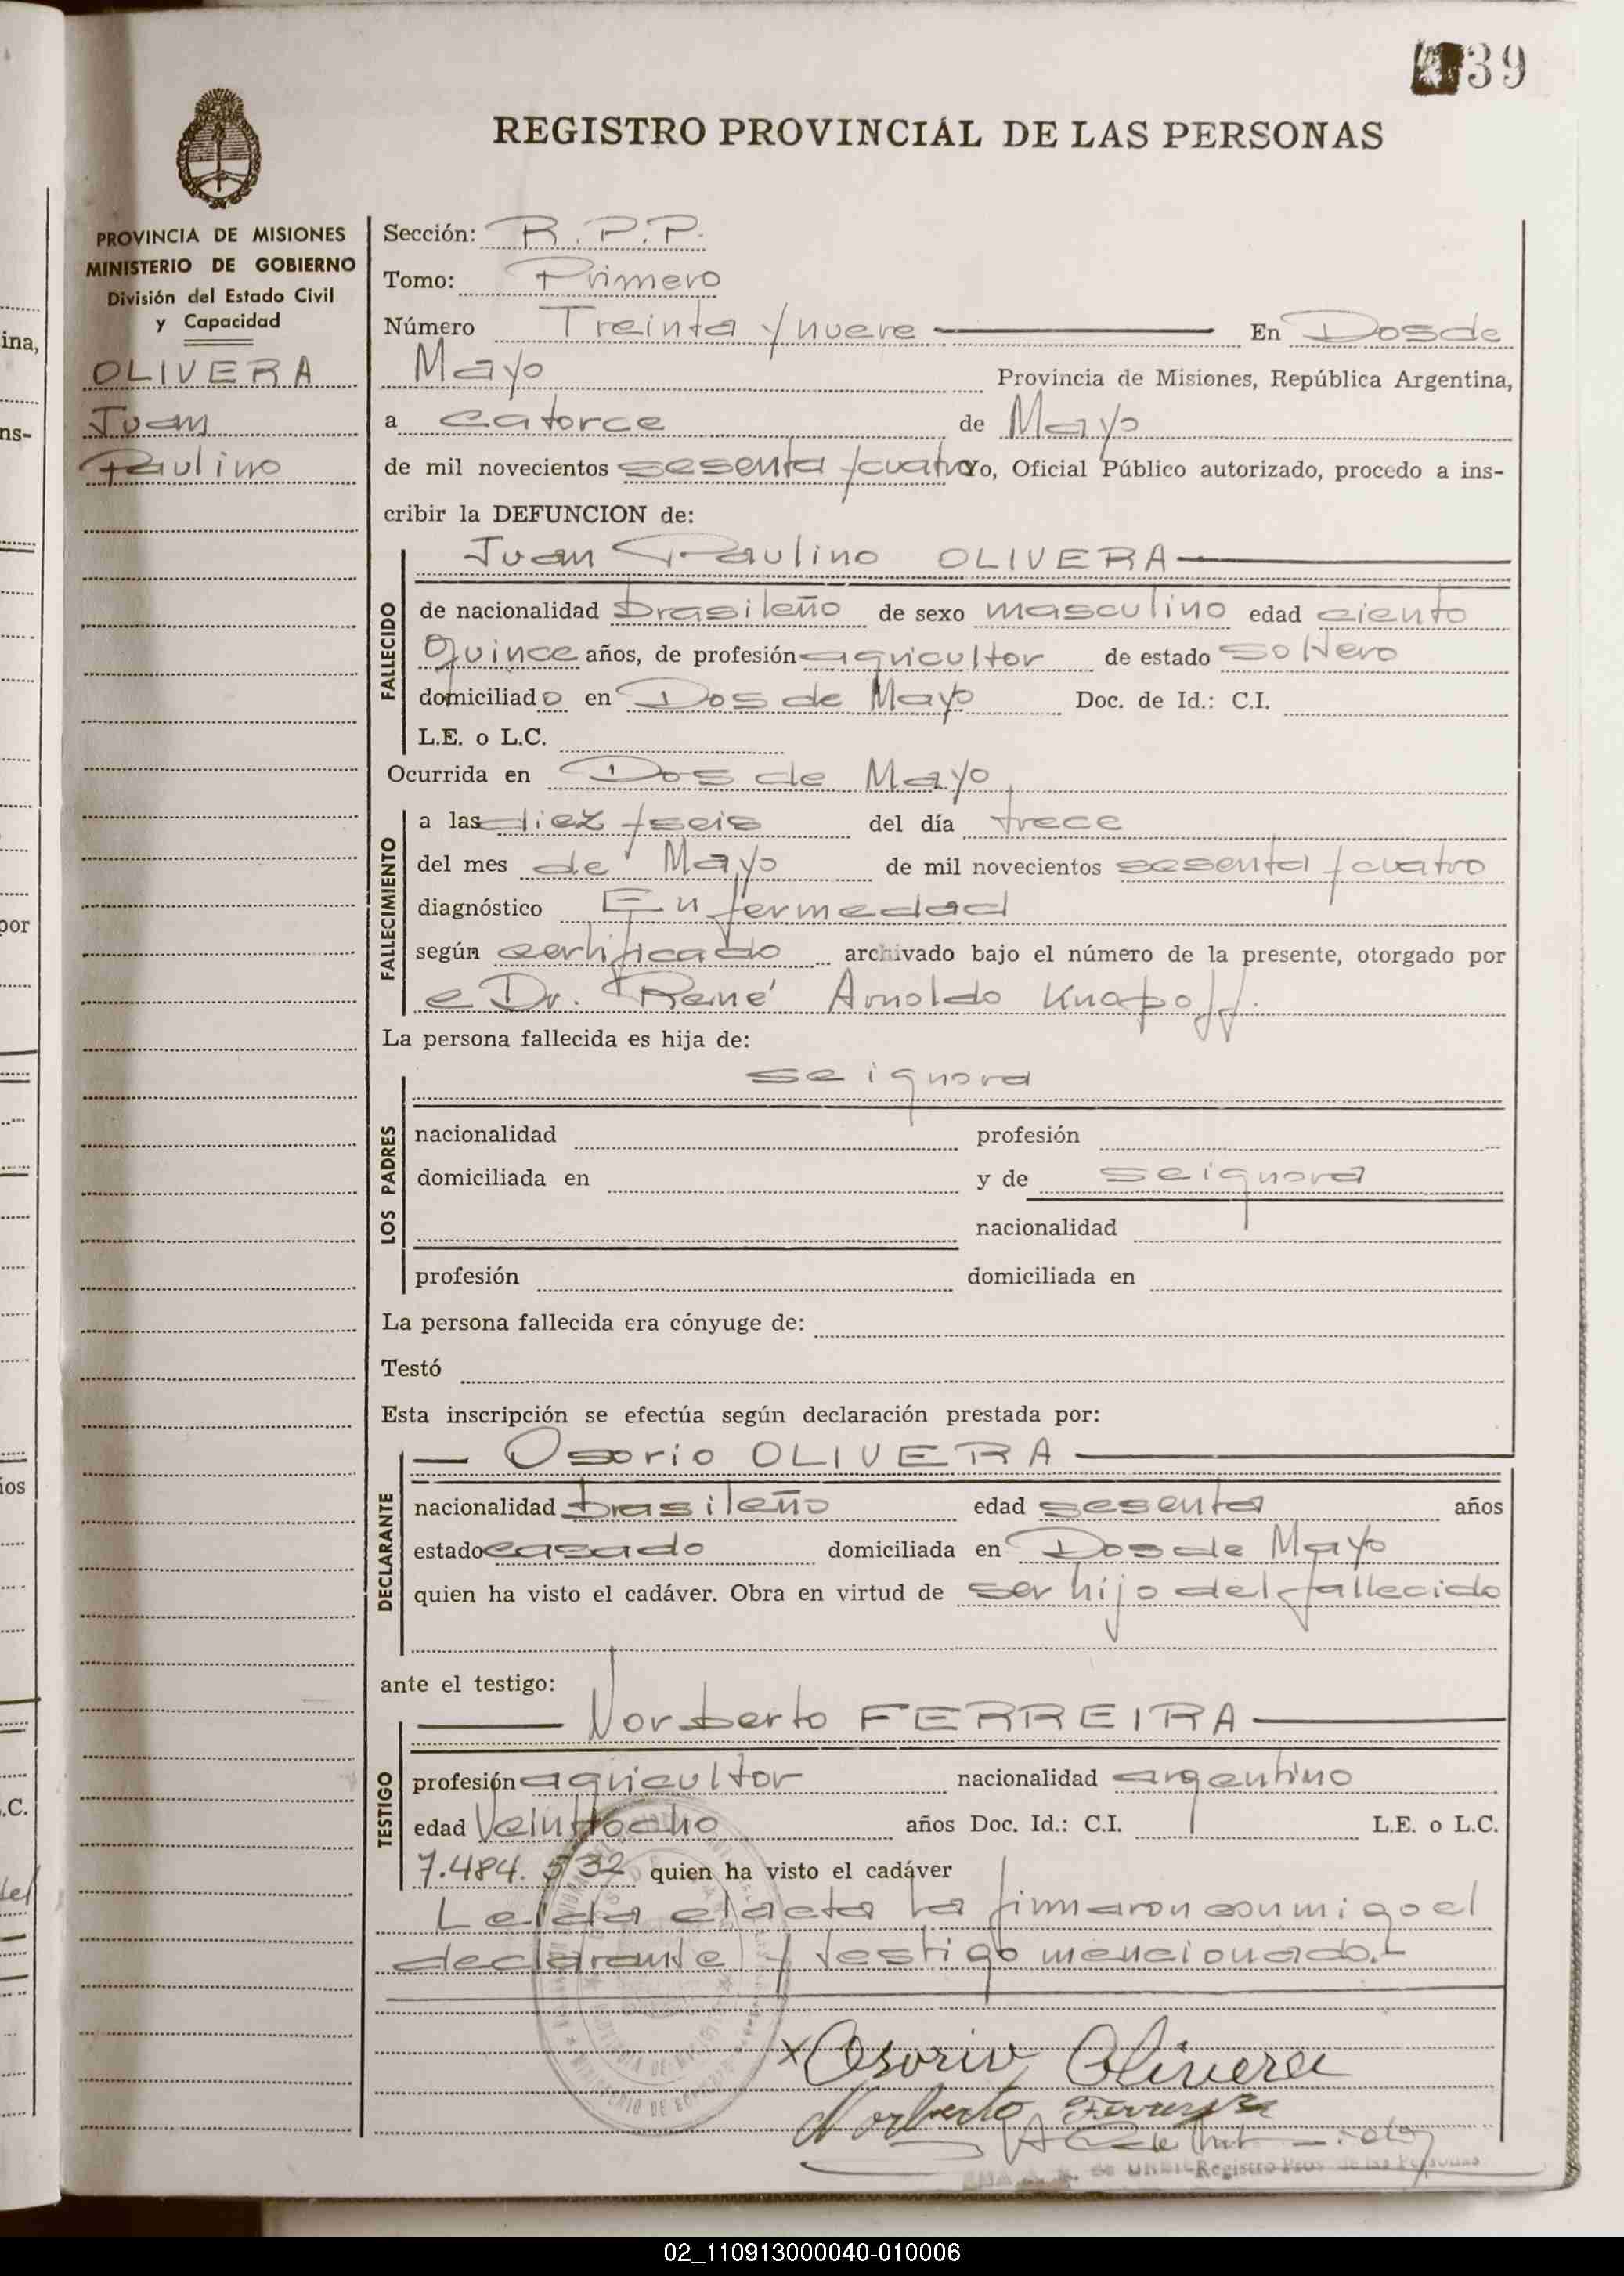 39
REGISTRO PROVINCIAL DE LAS PERSONAS
PROVINCIA DE MISIONES
MINISTERIO DE GOBIERNO
División del Estado Civil
y Capacidad
OLIVERA
Juan
Paulino
Sección: R.P.P.
Tomo: Primero
Número Treinta y nueve En Dos de
Mayo Provincia de Misiones, República Argentina,
a catorce de Mayo
de mil novecientos sesenta y cuatro Yo, Oficial Público autorizado, procedo a ins-
cribir la DEFUNCION de:
Juan Paulino OLIVERA
FALLECIDO
de nacionalidad brasileño de sexo masculino edad ciento
Quince años, de profesión agricultor de estado soltero
domiciliado en Dos de Mayo Doc. de Id.: C.I.
L.E. o L.C.
Ocurrida en Dos de Mayo
FALLECIMIENTO
a las diez y seis del día trece
del mes de Mayo de mil novecientos sesenta y cuatro
diagnóstico Enfermedad
según certificado archivado bajo el número de la presente, otorgado por
e Dr. René Arnoldo Knapoff.
La persona fallecida es hija de:
se ignora
LOS PADRES
nacionalidad profesión
domiciliada en y de se ignora
nacionalidad
profesión domiciliada en
La persona fallecida era cónyuge de:
Testó
Esta inscripción se efectúa según declaración prestada por:
Osorio OLIVERA
DECLARANTE
nacionalidad brasileño edad sesenta años
estado casado domiciliada en Dos de Mayo
quien ha visto el cadáver. Obra en virtud de ser hijo del fallecido
ante el testigo:
Norberto FERREIRA
TESTIGO
profesión agricultor nacionalidad argentino
edad Veintiocho años Doc. Id.: C.I. L.E. o L.C.
7.484.532 quien ha visto el cadáver
Leída el acta la firmaron conmigo el
declarante y testigo mencionado.-
x Osorio Olivera
Norberto Ferreira
Registro Prov. de las Personas
ina,
ns-
por
ios
.C.
02_110913000040-010006